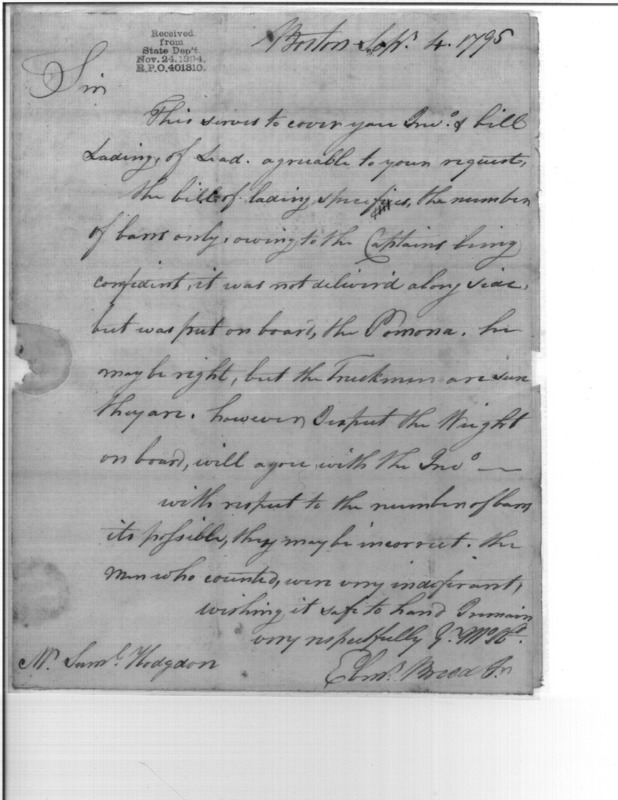 Received
from
State Dep't.
Nov. 24. 1894.
R.P.O. 401310.
Boston Sepr. 4. 1795
Sir
This serves to cover your Invo. & bill
Lading, of Lead. agreable to your request,
the bill of lading specifies, the number
of bars only, owing to the Captains being
confident, it was not deliver'd along side,
but was put on board, the Pomona. he
may be right, but the Truckmen are sure
they are. however, I expect the Weight
on board, will agree with the Invo. —
with respect to the number of bars
its possible, they may be incorrect. the
men who counted, were very indiferant,
wishing it safe to hand I remain
very respectfully Y. Mo. St.
Mr. Saml. Hodgdon
Ebnr. Breed Jr